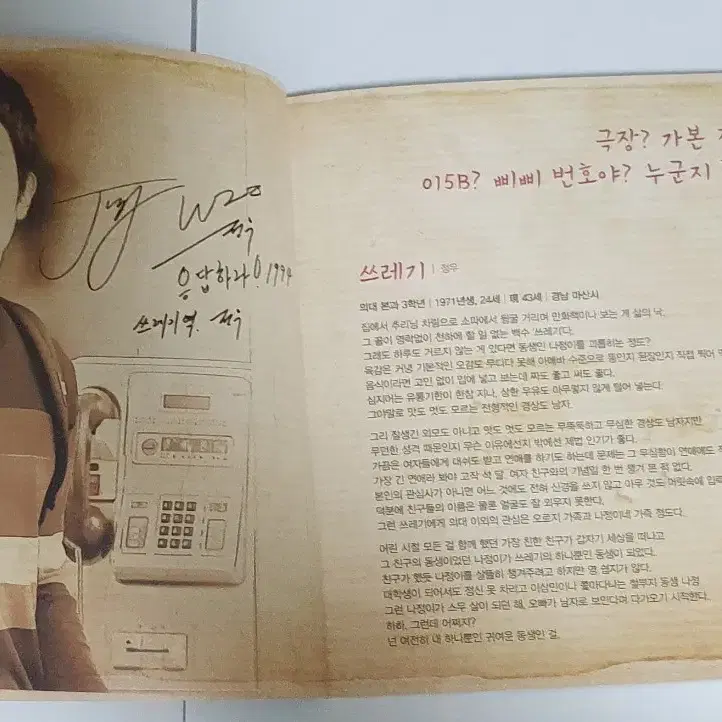 Jung Woo
정우
응답하라! 1994
쓰레기 역. 정우
극장? 가본
015B? 삐삐 번호야? 누군지
쓰레기 | 정우
의대 본과 3학년 | 1971년생, 24세 | 現 43세 | 경남 마산시
집에서 추리닝 차림으로 소파에서 뒹굴 거리며 만화책이나 보는 게 삶의 낙.
그 꼴이 영락없이 천하에 할 일 없는 백수 '쓰레기'다.
그래도 하루도 거르지 않는 게 있다면 동생인 나정이를 괴롭히는 정도?
육감은 커녕 기본적인 오감도 무디다 못해 아메바 수준으로 똥인지 된장인지 직접 찍어
음식이라면 고민 없이 입에 넣고 보는데 짜도 좋고 써도 좋다.
심지어는 유통기한이 한참 지나, 상한 우유도 아무렇지 않게 털어 넣는다.
그야말로 맛도 멋도 모르는 전형적인 경상도 남자.
그리 잘생긴 외모도 아니고 맛도 멋도 모르는 무뚝뚝하고 무심한 경상도 남자지만,
무던한 성격 때문인지 무슨 이유에선지 밖에선 제법 인기가 좋다.
가끔은 여자들에게 대쉬도 받고 연애를 하기도 하는데 문제는 그 무심함이 연애에도
가장 긴 연애라 봐야 고작 석 달. 여자 친구와의 기념일 한 번 챙겨 본 적 없다.
본인의 관심사가 아니면 어느 것에도 전혀 신경을 쓰지 않고 아무 것도 머릿속에 입력
덕분에 친구들의 이름은 물론 얼굴도 잘 외우지 못한다.
그런 쓰레기에게 의대 이외의 관심은 오로지 가족과 나정이네 가족 정도다.
어린 시절 모든 걸 함께 했던 가장 친한 친구가 갑자기 세상을 떠나고
그 친구의 동생이었던 나정이가 쓰레기의 하나뿐인 동생이 되었다.
친구가 했듯 나정이를 살뜰히 챙겨주려고 하지만 영 쉽지가 않다.
대학생이 되어서도 정신 못 차리고 이상민이나 쫓아다니는 철부지 동생 나정
그런 나정이가 스무 살이 되던 해, 오빠가 남자로 보인다며 다가오기 시작한다.
하하, 그런데 어쩌지?
넌 여전히 내 하나뿐인 귀여운 동생인 걸.